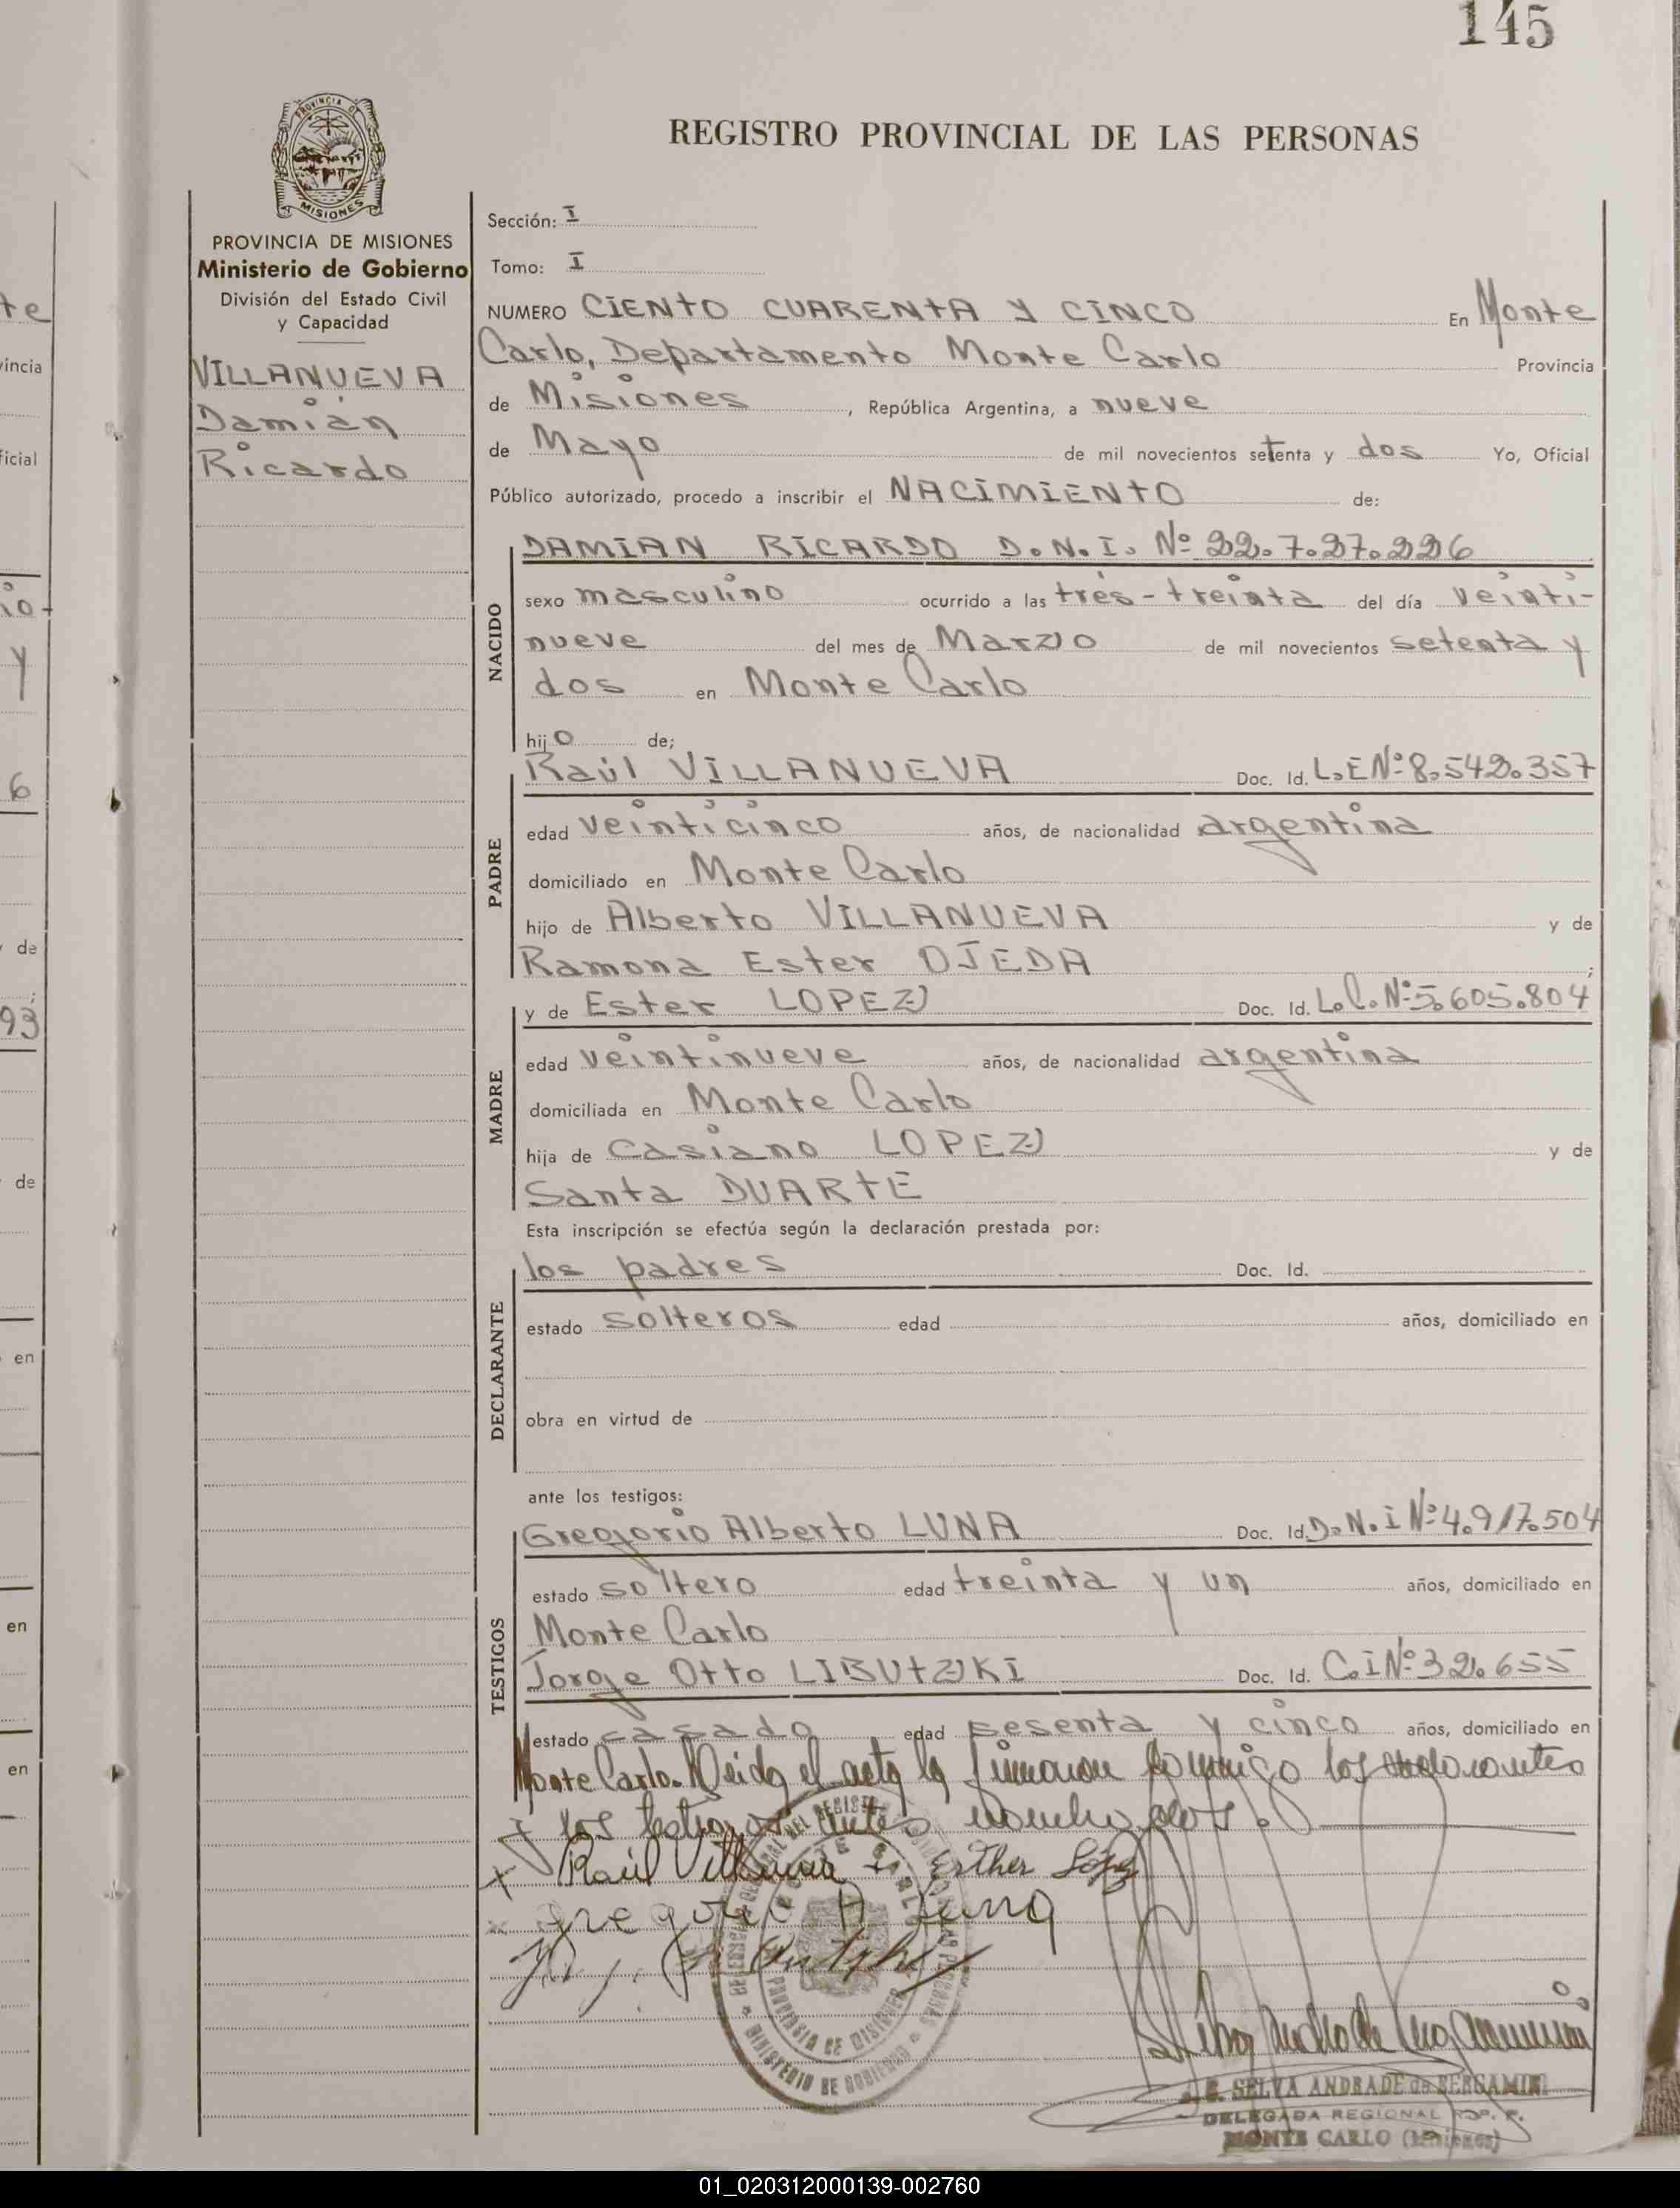 145
REGISTRO PROVINCIAL DE LAS PERSONAS
PROVINCIA DE MISIONES
PROVINCIA DE MISIONES
Ministerio de Gobierno
División del Estado Civil
y Capacidad
VILLANUEVA
Damián
Ricardo
Sección: I
Tomo: I
NUMERO CIENTO CUARENTA Y CINCO En Monte
Carlo, Departamento Monte Carlo Provincia
de Misiones, República Argentina, a nueve
de Mayo de mil novecientos setenta y dos Yo, Oficial
Público autorizado, procedo a inscribir el NACIMIENTO de:
NACIDO
DAMIAN RICARDO D.N.I. Nº 22.727.226
sexo masculino ocurrido a las tres-treinta del día veinti-
nueve del mes de Marzo de mil novecientos setenta y
dos en Monte Carlo
hijo de;
PADRE
Raúl VILLANUEVA Doc. Id. L.E Nº 8.542.357
edad veinticinco años, de nacionalidad argentina
domiciliado en Monte Carlo
hijo de Alberto VILLANUEVA y de
Ramona Ester OJEDA ;
MADRE
y de Ester LOPEZ Doc. Id. L.C. Nº 5.605.804
edad veintinueve años, de nacionalidad argentina
domiciliada en Monte Carlo
hija de Casiano LOPEZ y de
Santa DUARTE
Esta inscripción se efectúa según la declaración prestada por:
DECLARANTE
los padres Doc. Id.
estado solteros edad años, domiciliado en
obra en virtud de
ante los testigos:
TESTIGOS
Gregorio Alberto LUNA Doc. Id. D.N.i Nº 4.917.504
estado soltero edad treinta y un años, domiciliado en
Monte Carlo
Jorge Otto LIBUTZKI Doc. Id. C.i Nº 32.655
estado casado edad sesenta y cinco años, domiciliado en
Monte Carlo. Leida el acta la firmaron conmigo los
y los testigos antes nombrados.
Raúl Villanueva Esther López
Gregorio A Luna
MINISTERIO DE GOBIERNO
PROVINCIA DE MISIONES
SELVA ANDRADE de BERGAMIN
DELEGADA REGIONAL R. P. P.
MONTE CARLO (Misiones)
01_020312000139-002760